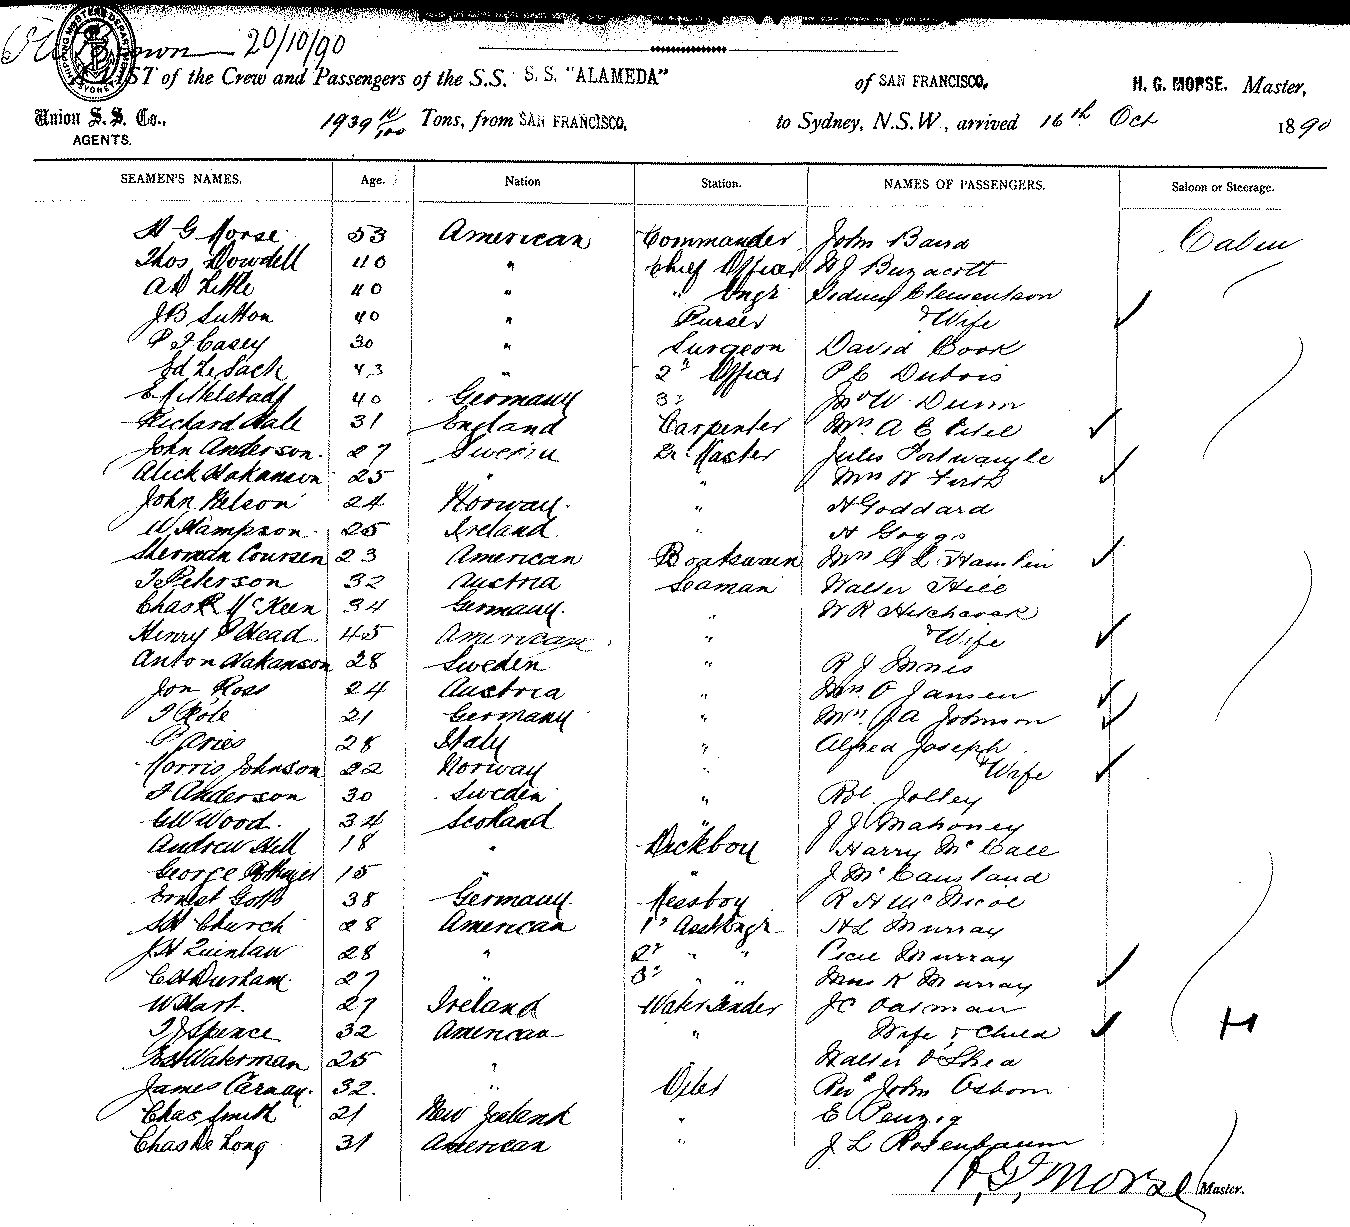 20/10/90
LIST of the Crew and Passengers of the S.S. S. S. "ALAMEDA" of SAN FRANCISCO, H. G. MORSE. Master,
Union S. S. Co., AGENTS. 1939 10/100 Tons, from SAN FRANCISCO, to Sydney, N.S.W., arrived 16th Oct 1890
SEAMEN'S NAMES. Age. Nation Station. NAMES OF PASSENGERS. Saloon or Steerage.
H G Morse 53 American Commander John Baird Cabin
Thos Dowdell 40 " Chief Officer W J Buzacott
A D Little 40 " " Engr Sidney Clementson
J B Sutton 40 " Purser & Wife
P J Casey 30 " Surgeon David Cook
Ed Le Sack 43 " 2d Officer P C Dubois
40 Germany 3d W Dunn
Richard Hale 31 England Carpenter Mrs A C
John Anderson 27 Master Jules
Alick Hakanson 25 " " Mrs W Firth
John Nelson 24 Norway " H Goddard
W Hampson 25 Ireland " H Goggs
Sherman Coursen 23 American Boatswain Mrs G L Hamlin
T Peterson 32 Austria Seaman Walter Hill
Chas R McKeen 34 Germany " W R Hitchcock
Henry P Head 45 American " & Wife
Anton Hakanson 28 Sweden " R J Innis
Jon Ross 24 Austria " Mrs O Jansen
21 Germany " Mrs J A Johnson
28 Italy " Alfred Joseph
Morris Johnson 22 Norway " & Wife
T Anderson 30 Sweden " Rbt Jolley
G W Wood 34 Scotland " J J Mahoney
Andrew Hill 18 " Deckboy Harry McCall
George 15 " " J McCausland
Ernest Gotts 38 Germany Messboy R H McNicol
S H Church 28 American 1st Asst Engr H L Murray
J H Quinlan 28 " 2d " " Cecil Murray
C H Durham 27 " 3d " " Miss K Murray
W Hart 27 Ireland Water Tender J C Oatman
T J Spence 32 American " Wife & Child
Ed Waterman 25 " " Walter O'Shea
James Carnay 32 " Oiler Revd John Osborn
Chas Smith 21 New Zealand " E Penzig
Chas De Long 31 American " J L Rosenbaum
H. G. Morse Master.